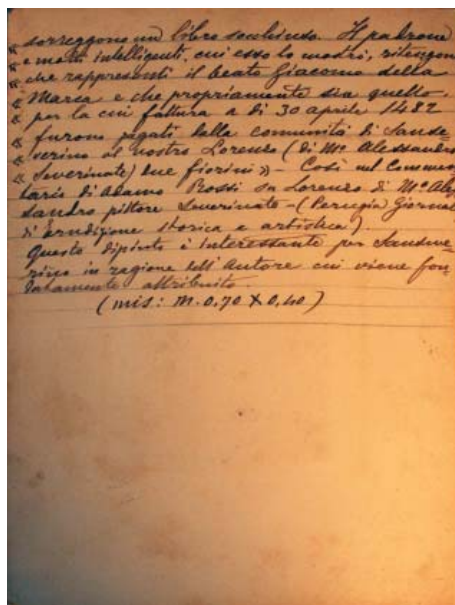 « sorreggono un libro socchiuso. Il padrone
« e molti intelligenti, cui esso lo mostrò, ritengon
« che rappresenti il beato Giacomo della
« Marca e che propriamente sia quello,
« per la cui fattura a dì 30 aprile 1482
« furono pagati dalla comunità di Sanse-
« verino al nostro Lorenzo (di Mº Alessandro
« Severinate) due fiorini » - Così nel Commen-
tario di Adamo Rossi su Lorenzo di Mº Ales
sandro pittore Severinate - (Perugia Giornal
di Erudizione storica e artistica).
Questo dipinto è interessante per Sanseve-
rino in ragione dell'Autore cui viene fon-
datamente attribuito.
(mis: m. 0,70 X 0,40)